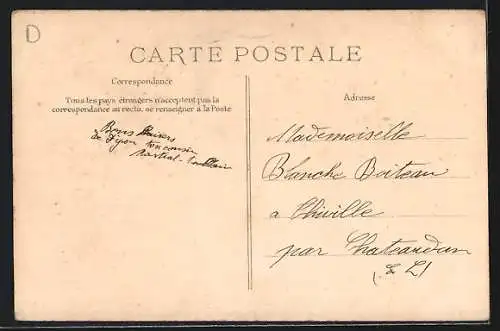 D
CARTE POSTALE
Correspondance
Tous les pays étrangers n'acceptent pas la
correspondance au recto, se renseigner à la Poste
Adresse
Bons Baisers
de Dijon ton cousin
Martial
Mademoiselle
Blanche Boiteau
a Chiville
par Chateaudun
(E L)